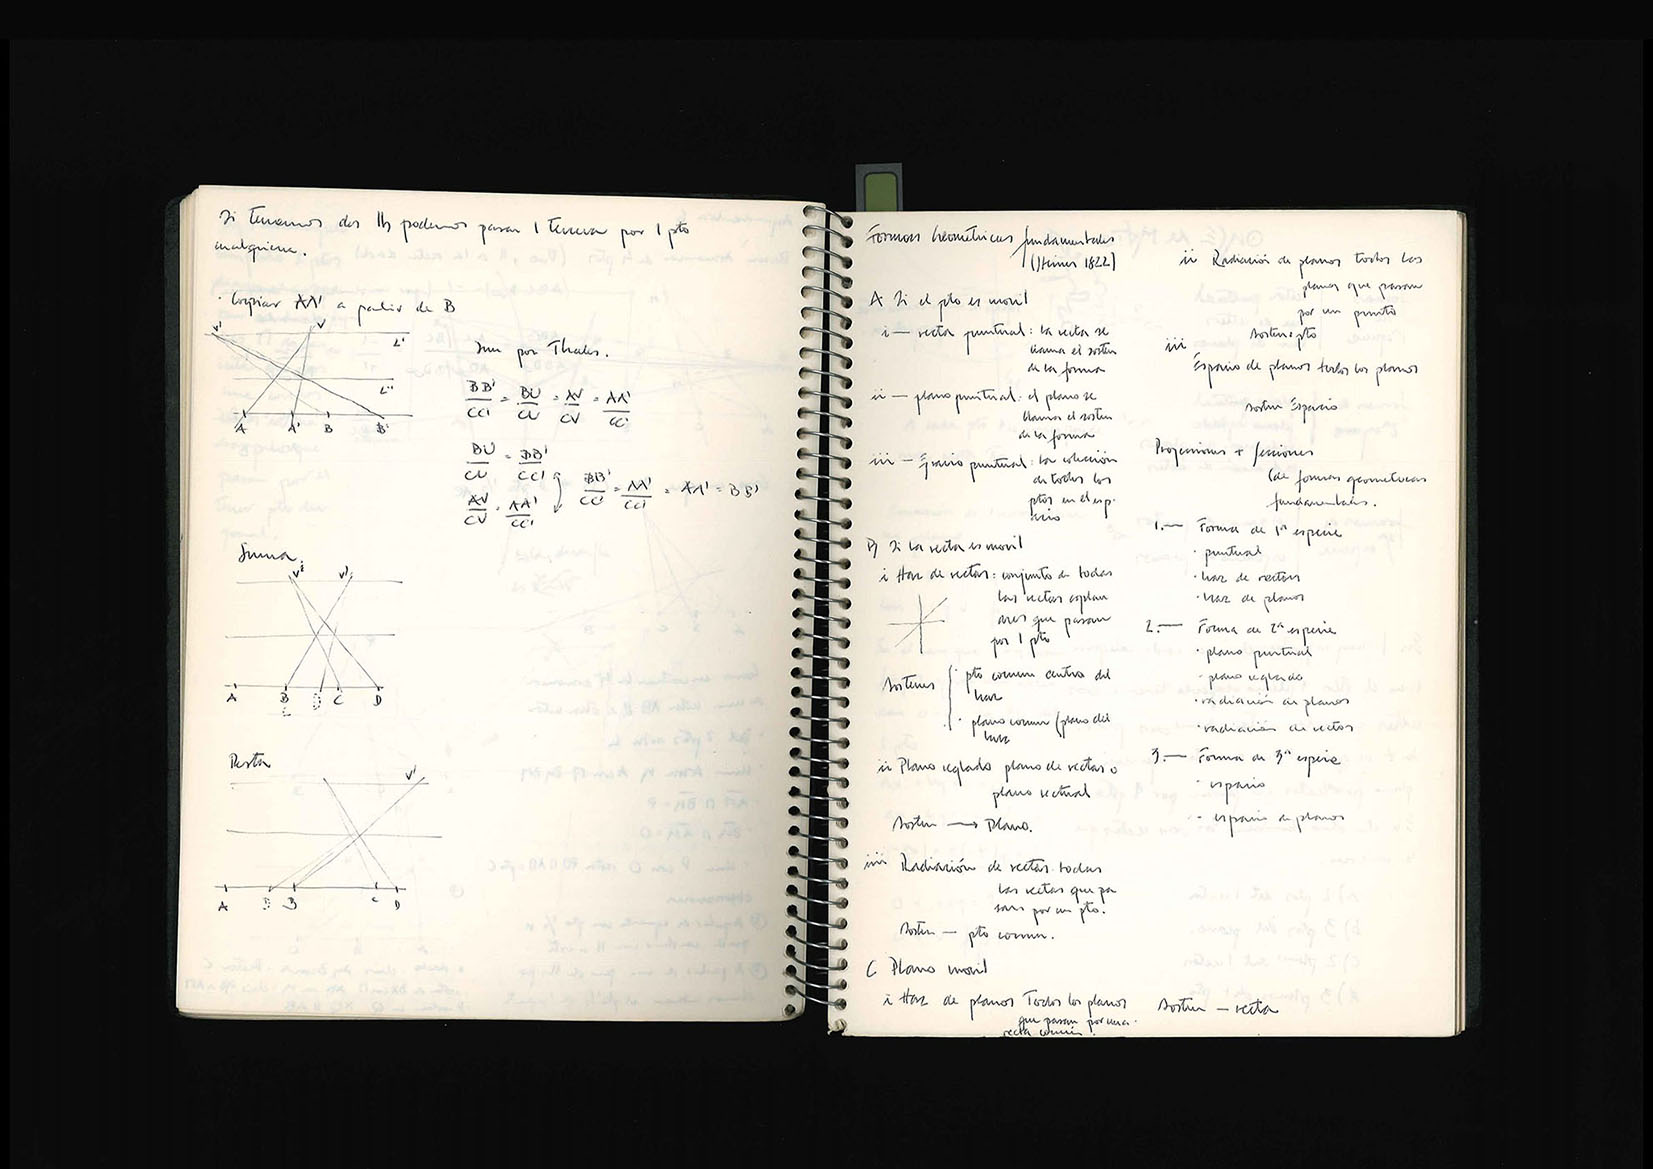 Si tenemos dos //s podemos pasar 1 tercera por 1 pto
cualquiera.
· Copiar AA' a partir de B
V' V
L'
L''
A A' B B'
por Thales.
BB'/CC' = BU/CU = AV/CV = AA'/CC'
BU/CU = BB'/CC'
AV/CV = AA'/CC'
BB'/CC' = AA'/CC' = AA' = BB'
Suma.
V² V'
A B C D
Resta
V'
A B C D
Formas Geométricas fundamentales
1822]
A Si el pto es movil
i — recta puntual: la recta se
llama el sosten
de la forma
ii — plano puntual: el plano se
llama el sosten
de la forma
iii — Espacio puntual: la colección
de todos los
ptos en el esp-
acio
B) Si la recta es movil
i Haz de rectas: conjunto de todas
las rectas coplan
ares que pasan
por 1 pto
Sostenes
· pto comun centro del
haz
· plano comun (plano del
haz
ii Plano reglado plano de rectas o
plano rectual
Sosten → Plano.
iii Radiación de rectas. todas
las rectas que pa
san por un pto.
Sosten — pto comun.
C Plano movil
i Haz de planos Todos los planos
que pasan por una
recta común.
Sosten — recta
ii Radiación de planos todos los
planos que pasan
por un punto
sosten: pto
iii
Espacio de planos todos los planos
sosten Espacio
Proyecciones + secciones
(de formas geometricas
fundamentales.
1.— Forma de 1ª especie
· puntual
· haz de rectas
· haz de planos
2.— Forma de 2ª especie
· plano puntual
· plano reglado
· radiación de planos
· radiación de rectas
3.— Forma de 3ª especie
· espacio
· espacio de planos